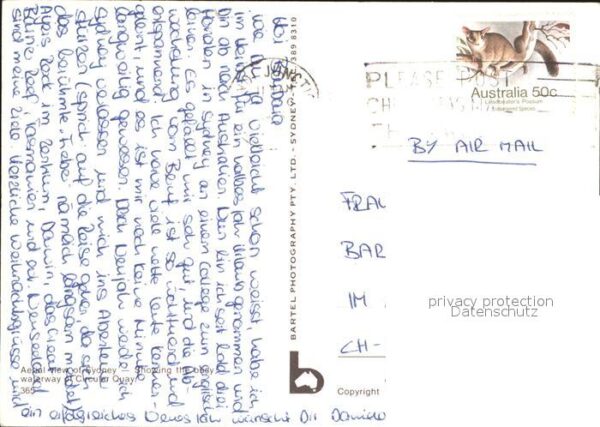 Hoi Barbara
Wie Du ja vielleicht schon weisst, habe ich
im Moment ein halbes Jahr Urlaub genommen und
bin ab nach Australien. Nun bin ich seit bald drei
Monaten in Sydney an einem College zum Englisch
lernen. Es gefällt mir sehr gut und die Ab-
wechslung vom Beruf ist so und
entspannend. Ich habe viele nette Leute kennen-
gelernt, und es ist mir noch keine Minute
langweilig gewesen. Nach Neujahr werde ich
Sydney verlassen und mich ins Abenteuer
stürzen (sprich auf die Reise gehen, da sich
das berühmte Fieber nämlich langsam meldet)
Ayers Rock im Zentrum, Darwin, das Great
Barrier Reef, Tasmanien und evt. Neuseeland
sind meine Ziele. Herzliche Weihnachtsgrüsse und
ein erfolgreiches Neues Jahr wünscht Dir
Aerial view of Sydney Showing the busy
waterway of Circular Quay.
365
BARTEL PHOTOGRAPHY PTY. LTD. - SYDNEY
389 8310
b
Copyright
Australia 50c
Leadbeater's Possum
Endangered Species
PLEASE POST
BY AIR MAIL
FRAU
BAR
IM
CH-
privacy protection
Datenschutz